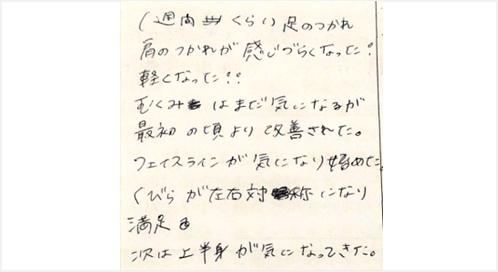 1週間くらい足のつかれ
肩のつかれが感じづらくなった!
軽くなった!!
むくみはまだ気になるが
最初の頃より改善された。
フェイスラインが気になり始めた。
くびらが左右対称になり
満足
次は上半身が気になってきた。